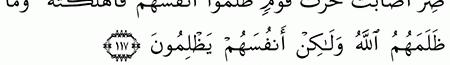 صِرٌّ أَصَابَتْ حَرْثَ قَوْمٍ ظَلَمُوٓا۟ أَنفُسَهُمْ فَأَهْلَكَتْهُ وَمَا
ظَلَمَهُمُ ٱللَّهُ وَلَـٰكِنْ أَنفُسَهُمْ يَظْلِمُونَ ﴿١١٧﴾